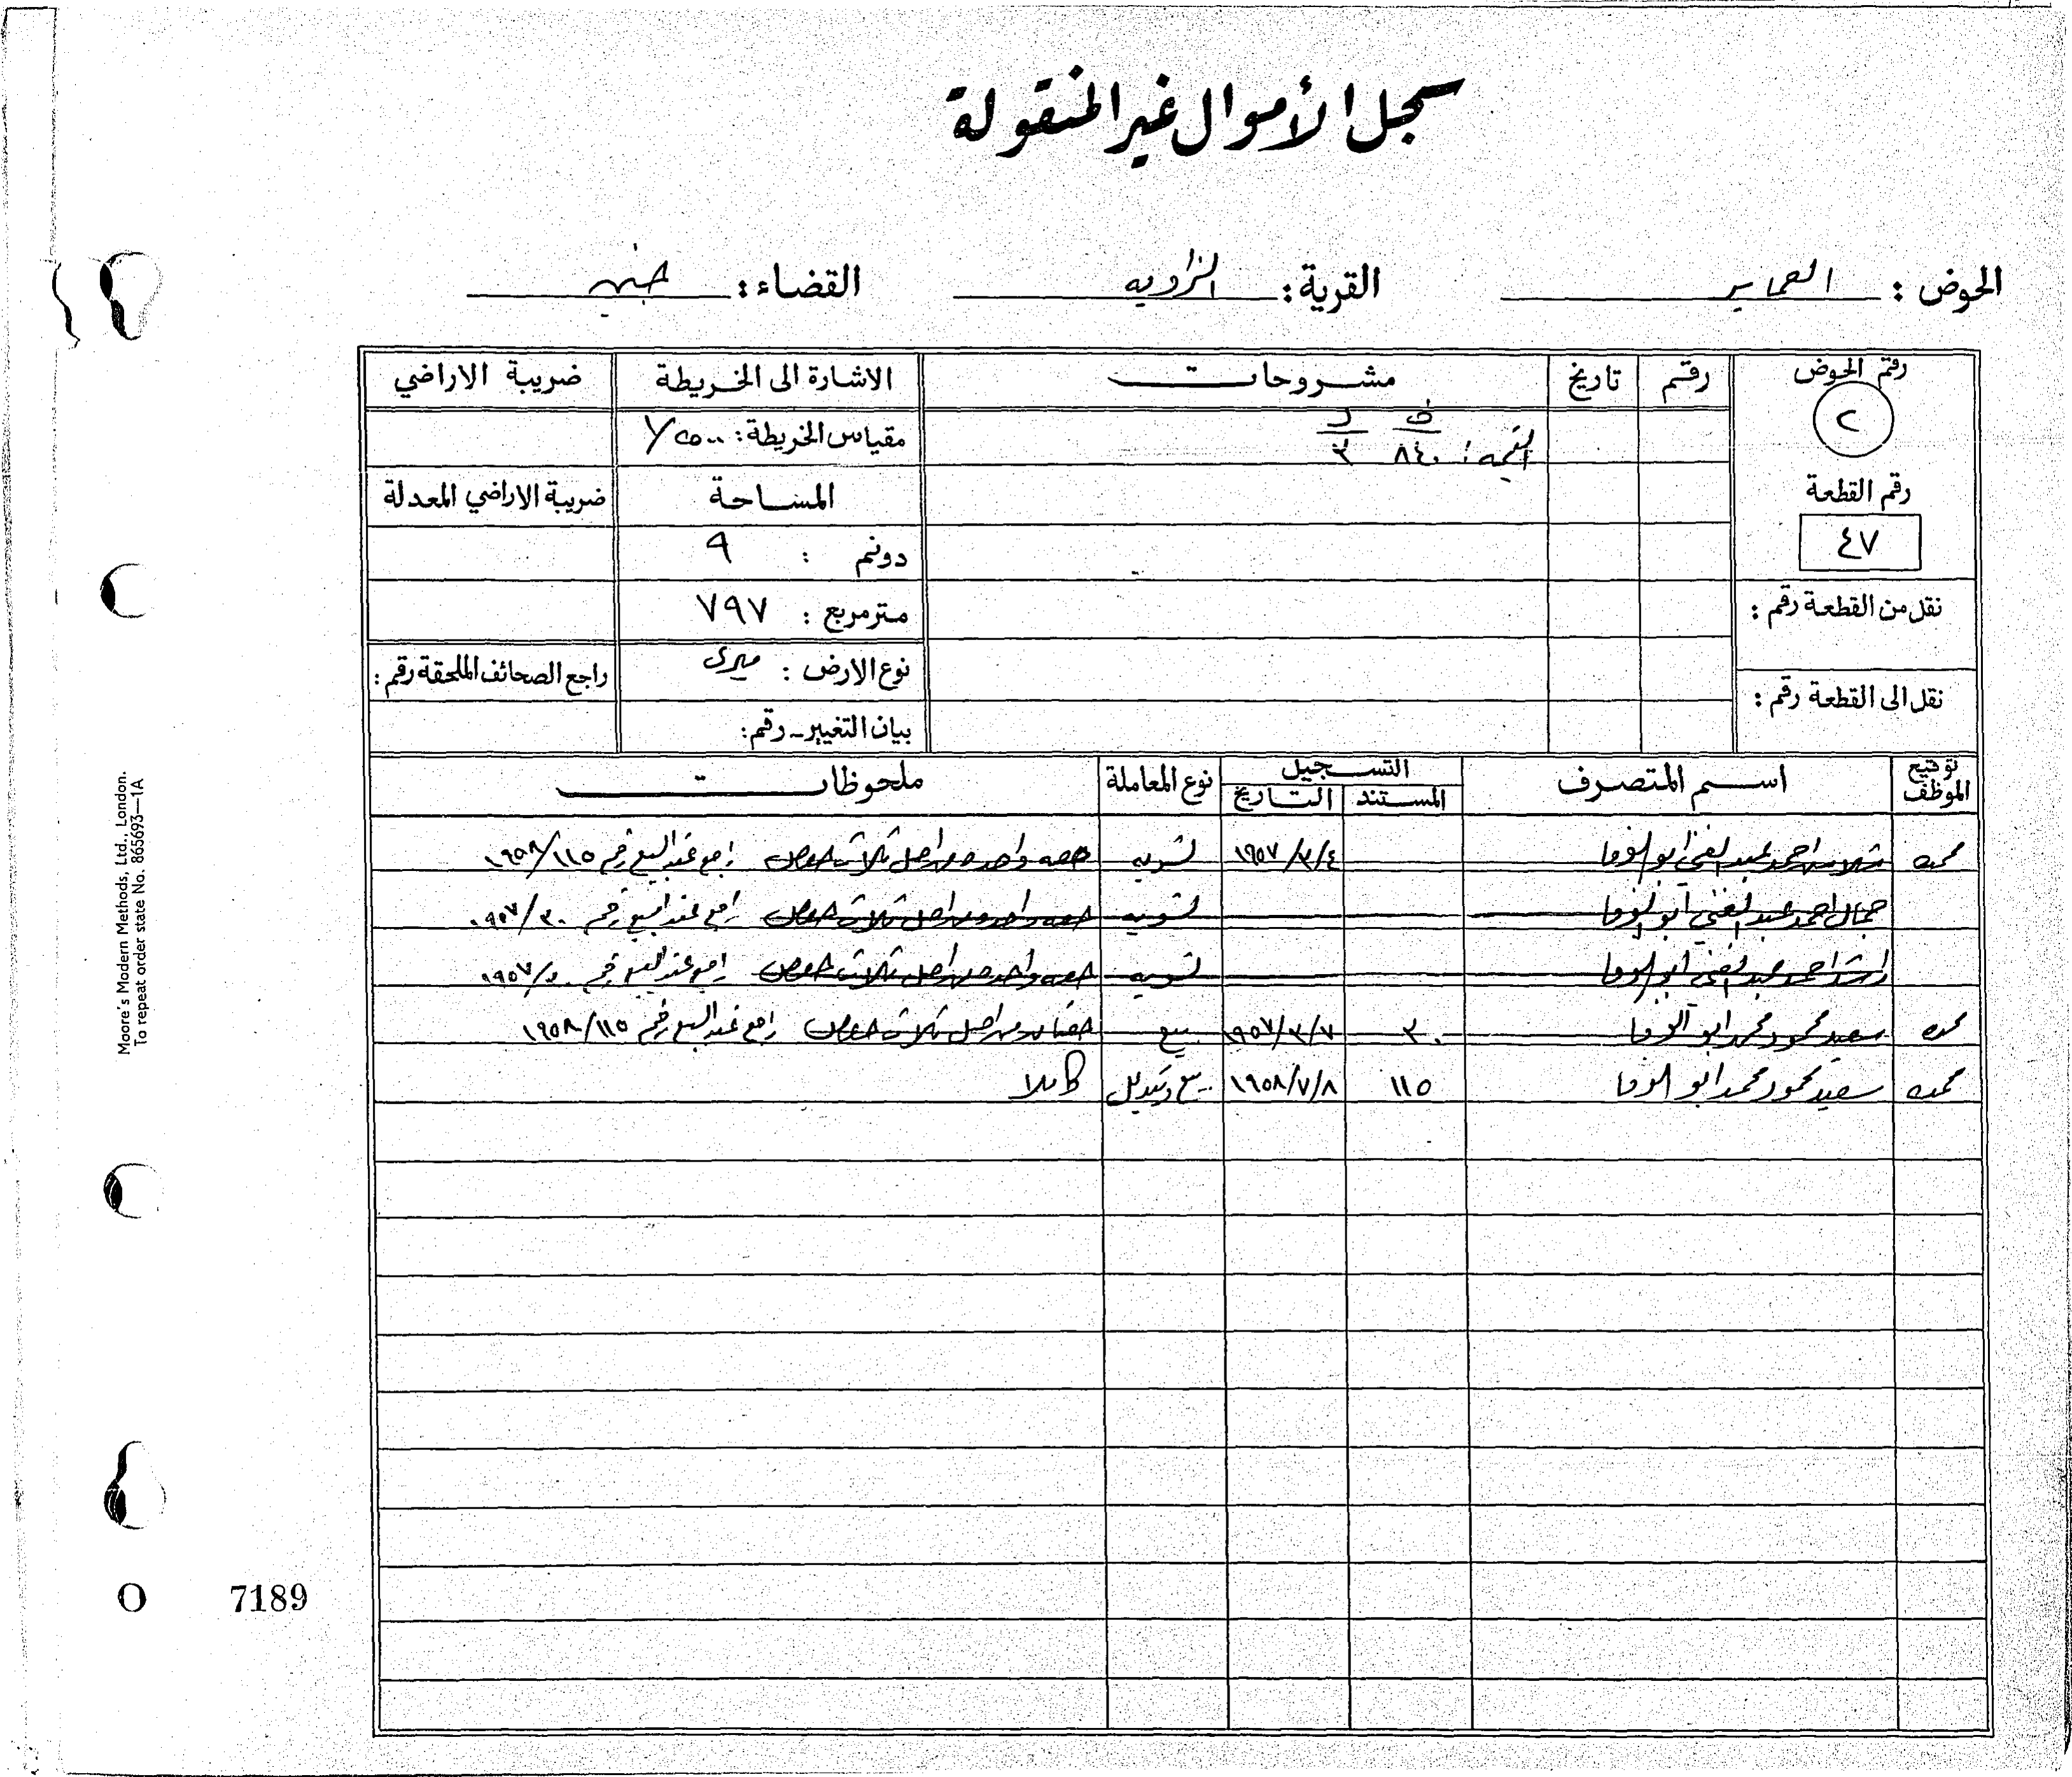 سجل الأموال غير المنقولة
الحوض : العماير القرية : الزاويه القضاء : جنين
رقم الحوض رقم تاريخ مشروحات الاشارة الى الخريطة ضريبة الاراضي
٢ القيمة : ف ٨٤٠ د ٣ مقياس الخريطة : ١/٢٥٠٠
رقم القطعة المساحة ضريبة الاراضي المعدلة
٤٧ دونم : ٩
نقل من القطعة رقم : متر مربع : ٧٩٧
نوع الارض : ميري راجع الصحائف الملحقة رقم :
نقل الى القطعة رقم : بيان التغيير - رقم :
توقيع الموظف اسم المتصرف التسجيل نوع المعاملة ملحوظات
المستند التاريخ
احمد عبد الغني ابو الوفا ١٩٥٧/٣/٤ تسويه حصه واحده من اصل ثلاث حصص راجع عقد البيع رقم ١٩٥٨/١١٥
جمال احمد عبد الغني ابو الوفا تسويه حصه واحده من اصل ثلاث حصص راجع عقد البيع رقم ١٩٥٧/٣٠
راشد احمد عبد الغني ابو الوفا تسويه حصه واحده من اصل ثلاث حصص راجع عقد البيع رقم
سعيد محمود محمد ابو الوفا ٣٠ ١٩٥٧/٣/٧ بيع حصتان من اصل ثلاث حصص راجع عقد البيع رقم ١٩٥٨/١١٥
سعيد محمود محمد ابو الوفا ١١٥ ١٩٥٨/٧/٨ بيع وتبديل كاملا
Moore's Modern Methods, Ltd., London.
To repeat order state No. 865693—1A
O 7189